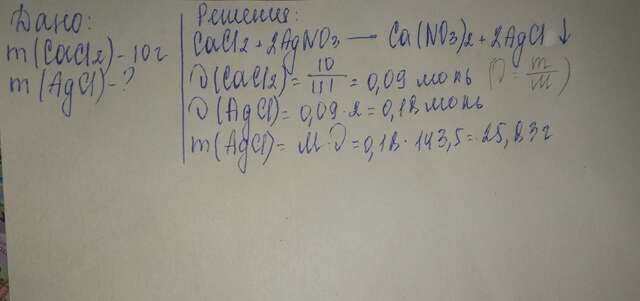 Дано:
m(CaCl2)-10г
m(AgCl)-?
Решения:
CaCl2+2AgNO3—Ca(NO3)2+2AgCl↓
ν(CaCl2)=10/111=0,09 моль (ν=m/M)
ν(AgCl)=0,09·2=0,18 моль
m(AgCl)=M·ν=0,18·143,5=25,83г